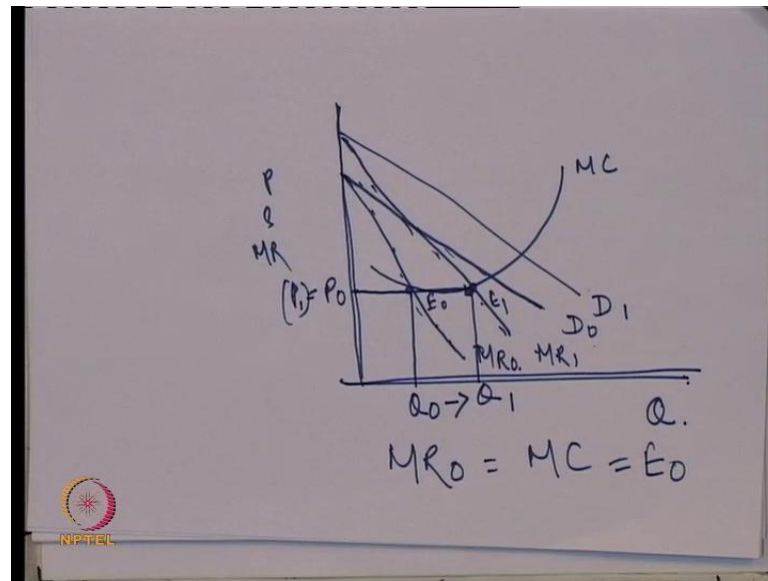 MC
P
&
MR
(P1) = P0
E0
E1
D1
D0
MR0. MR1
Q0 → Q1
Q.
MR0 = MC = E0
NPTEL